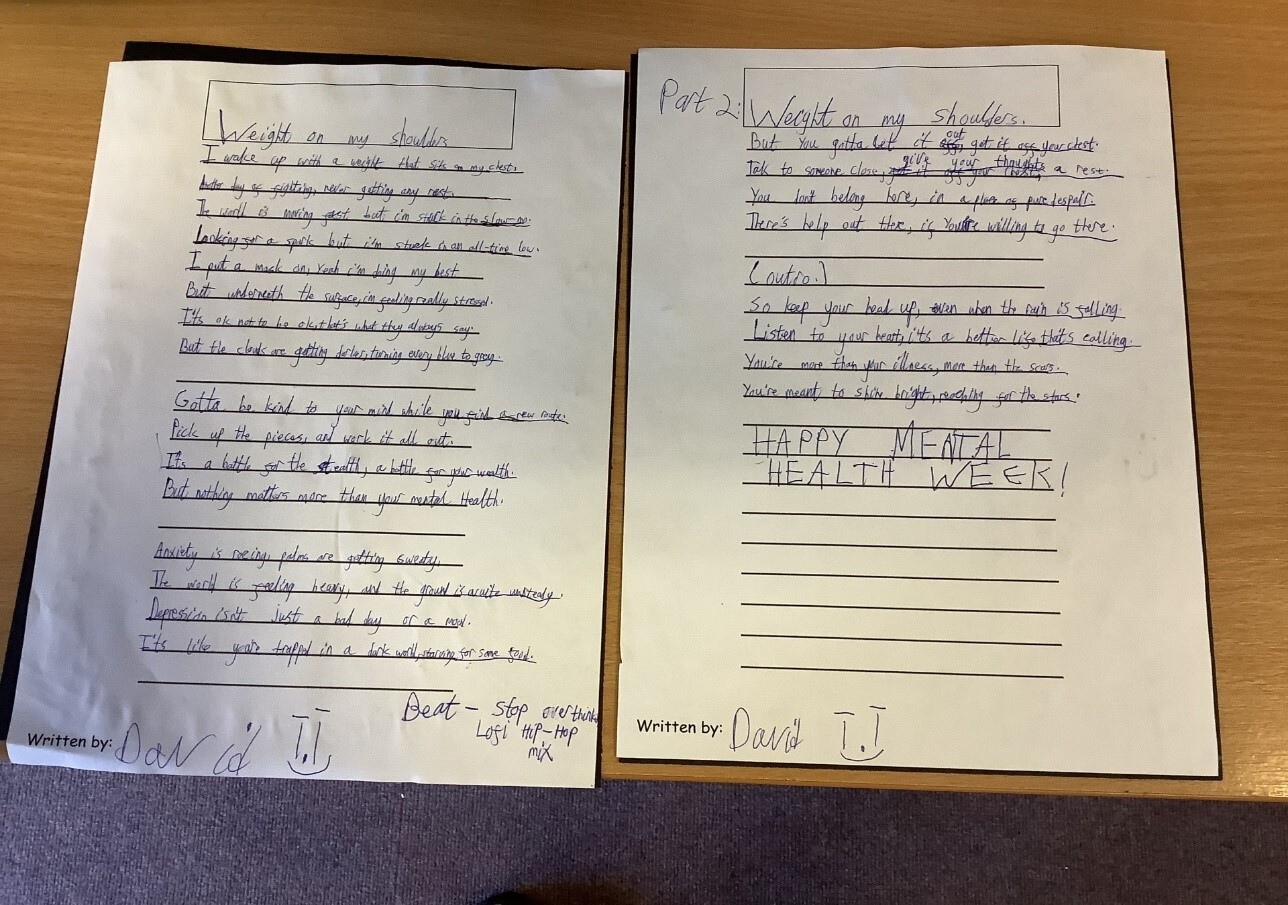 Weight on my shoulders
I wake up with a weight that sits on my chest,
Another day of fighting, never getting any rest,
The world is moving fast but i'm stuck in the slow-mo.
Looking for a spark but i'm stuck in an all-time low.
I put a mask on, Yeah i'm doing my best
But underneath the surface, i'm feeling really stressed.
It's ok not to be ok, that's what they always say.
But the clouds are getting darker, turning every blue to grey.
Gotta be kind to your mind while you find a new route.
Pick up the pieces, and work it all out.
It's a battle for the stealth, a battle for your wealth.
But nothing matters more than your mental Health.
Anxiety is racing, palms are getting sweaty,
The world is feeling heavy, and the ground is acuite unsteady.
Depression isn't just a bad day or a mood.
It's like you're trapped in a dark world, starving for some food.
Beat - Stop overthink
Lofi Hip-Hop
mix
Written by: David
Part 2: Weight on my shoulders.
But You gotta let it out, get it off your chest.
Talk to someone close, give your thoughts a rest.
You don't belong here, in a place of pure despair.
There's help out there, if You're willing to go there.
(outro.)
So keep your head up, even when the rain is falling.
Listen to your heart, it's a better life that's calling.
You're more than your illness, more than the scars.
You're meant to shine bright, reaching for the stars.
HAPPY MENTAL
HEALTH WEEK!
Written by: David